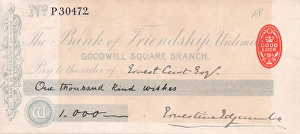 No P30472 18
The Bank of Friendship Unlimited
GOODWILL SQUARE BRANCH.
GOOD LUCK
Pay to the order of Ernest Cust Esqr.
One thousand kind wishes
1.000 — Ernestine Edgcumbe